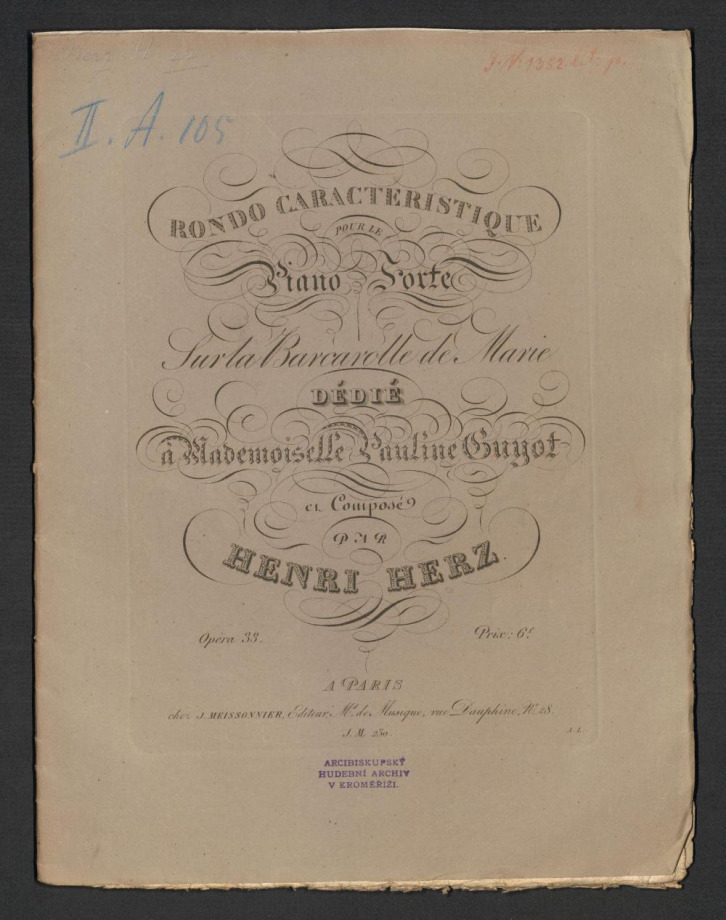 J. N: 1352 lit: p.
II. A. 105
RONDO CARACTERISTIQUE
POUR LE
Piano Forte
Sur la Barcarolle de Marie
DÉDIÉ
à Mademoiselle Pauline Guyot
et Composé
PAR
HENRI HERZ.
Opéra 33.
Prix: 6f
A PARIS
chez J. MEISSONNIER, Editeur, Md. de Musique, rue Dauphine, No. 28.
J. M. 250.
A.L.
ARCIBISKUPSKÝ
HUDEBNÍ ARCHIV
V KROMĚŘÍŽI.